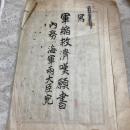 写
軍縮救済嘆願書
内務 海軍両大臣宛